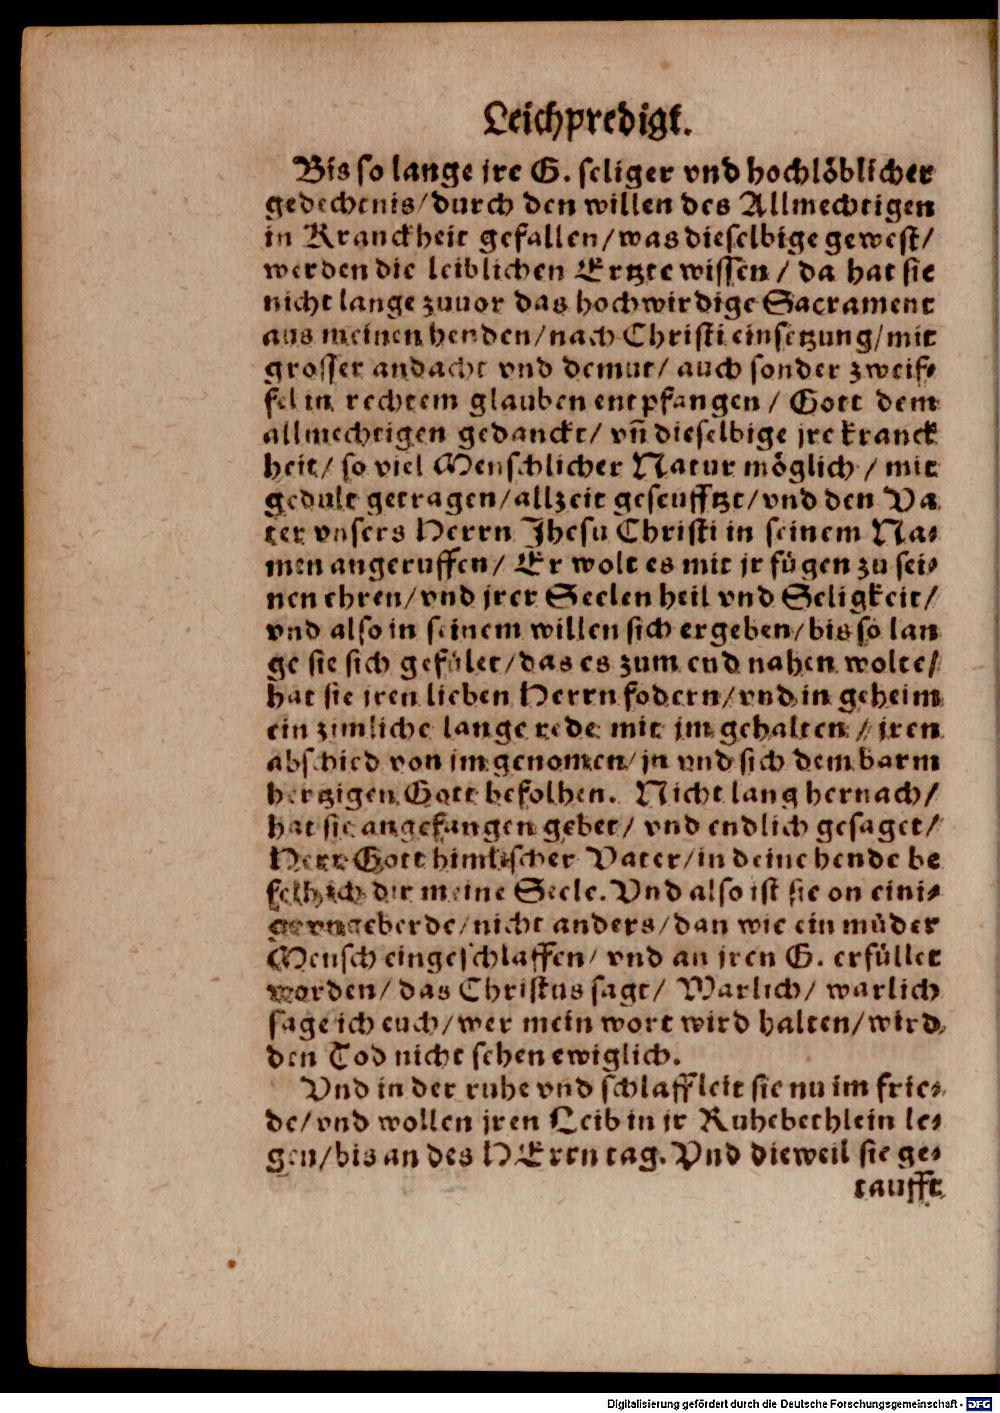 Leichpredigt.
Bis so lange jre G. seliger vnd hochlöblicher
gedechtnis/durch den willen des Allmechtigen
in Kranckheit gefallen/was dieselbige gewest/
werden die leiblichen Ertzte wissen/ da hat sie
nicht lange zuuor das hochwirdige Sacrament
aus meinen henden/nach Christi einsetzung/mit
grosser andacht vnd demut/ auch sonder zweif⸗
fel in rechtem glauben entpfangen/ Gott dem
allmechtigen gedanckt/ vñ dieselbige jre kranck
heit/ so viel Menschlicher Natur möglich/ mit
gedult getragen/allzeit geseufftzt/vnd den Va
ter vnsers Herrn Jhesu Christi in seinem Na⸗
men angeruffen/ Er wolt es mit jr fügen zu sei⸗
nen ehren/vnd jrer Seelen heil vnd Seligkeit/
vnd also in seinem willen sich ergeben/bis so lan
ge sie sich gefület/das es zum end nahen wolte/
hat sie jren lieben Herrn fodern/vnd in geheim
ein zimliche lange rede mit jm gehalten/ jren
abschied von jm genomen/jn vnd sich dem barm
hertzigen Gott befolhen. Nicht lang hernach/
hat sie angefangen gebet/ vnd endlich gesaget/
Herr Gott himlischer Vater/in deine hende be
felh ich dir meine Seele. Vnd also ist sie on eini⸗
ger vngeberde/nicht anders/dan wie ein müder
Mensch eingeschlaffen/ vnd an jren G. erfüllet
worden/ das Christus sagt/ Warlich/ warlich
sage ich euch/wer mein wort wird halten/wird
den Tod nicht sehen ewiglich.
Vnd in der ruhe vnd schlaff leit sie nu im frie⸗
de/vnd wollen jren Leib in jr Ruhebethlein le⸗
gen/bis an des HErrn tag. Vnd dieweil sie ge⸗
taufft
Digitalisierung gefördert durch die Deutsche Forschungsgemeinschaft - DFG